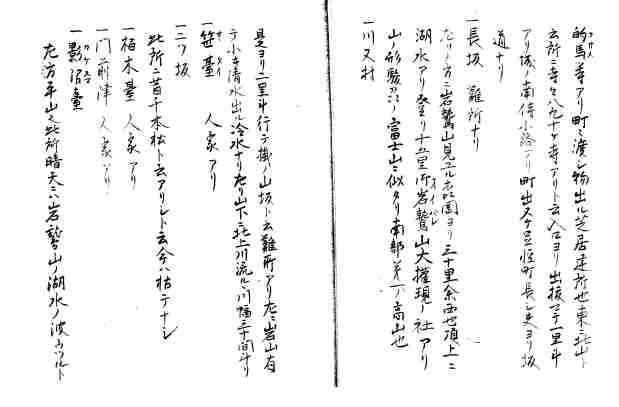 的馬寺アリ町ニ渡シ物出ル芝居建所也東ニ北山ト
云所ニ寺々八九十ケ寺アリト云入口ヨリ出抜マテ一里斗
アリ城ノ南侍小路アリ町出ヌケ 町長シ夫ヨリ坂
道ナリ
一長坂 難所ナリ
左リノ方ニ岩鷲山見エル 三十里余西也頂上ニ
湖水アリ登リ十五里所岩鷲山大権現ノ社アリ
山ノ形駿河ノ富士山ニ似タリ南部第一ノ高山也
一川又村
是ヨリ二里斗行テ ノ山坂ト云難所アリ左ニ岩山有
テ小キ清水出ル冷水ナリ左リ山下ニ北上川流ル川幅三十間斗リ
一笹台 人家アリ
一三ツ坂
此所ニ昔千本松ト云アリシト云今ハ枯テナシ
一柏木台 人家アリ
一門前津 人家アリ
一影沼台
左方平山也此所晴天ニハ岩鷲山ノ湖水ノ波ウツルト